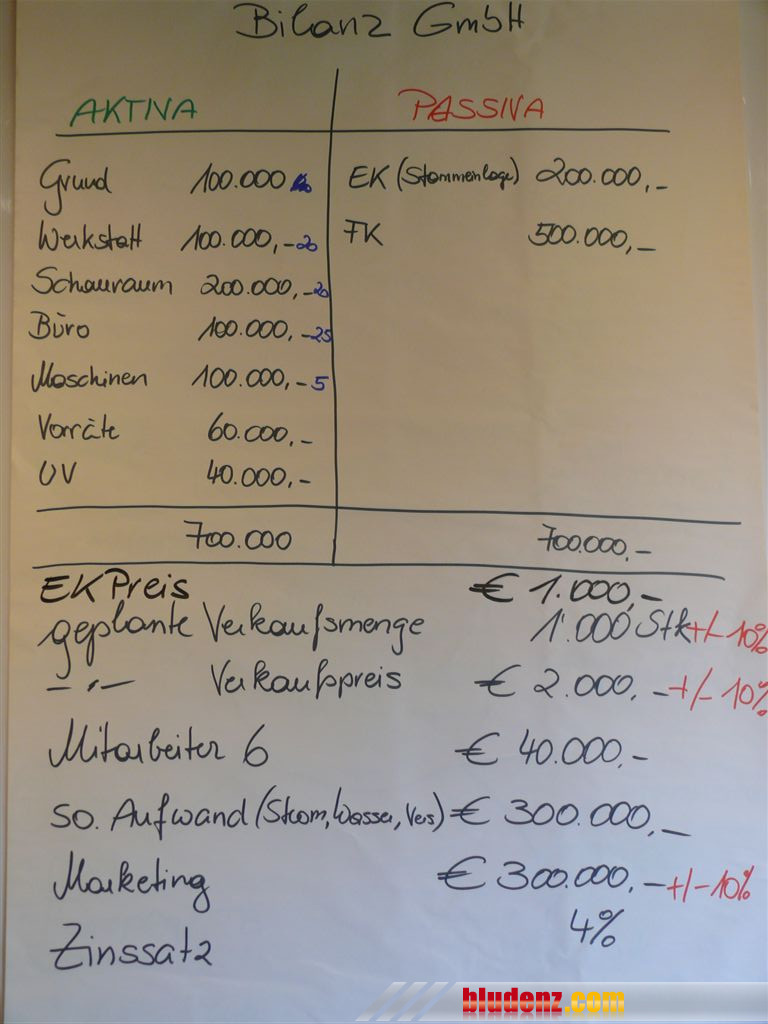 Bilanz GmbH
AKTIVA PASSIVA
Grund 100.000 EK (Stammeinlage) 200.000,–
Werkstatt 100.000,– 20 FK 500.000,–
Schauraum 200.000,– 20
Büro 100.000,– 25
Maschinen 100.000,– 5
Vorräte 60.000,–
UV 40.000,–
700.000 700.000,–
EK Preis € 1.000,–
geplante Verkaufsmenge 1.000 Stk +/- 10%
–„– Verkaufspreis € 2.000,– +/- 10%
Mitarbeiter 6 € 40.000,–
so. Aufwand (Strom, Wasser, Vers) € 300.000,–
Marketing € 300.000,– +/- 10%
Zinssatz 4%
bludenz.com